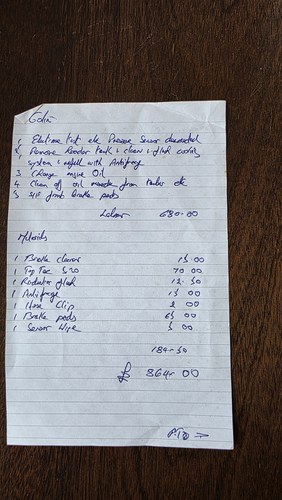 Colin
1, Electrical test etc Pressure Sensor disconnected
2, Remove Header tank & clean & flush cooling
system & refill with Antifreeze
3 Change engine Oil
4 Clean off oil from etc
5 S/F front brake pads
Labour 680-00
Materials
1 Brake cleaner 15 00
1 Top Tec 70 00
1 Radiator flush 12-50
1 Antifreeze 15 00
1 Hose Clip 2 00
1 Brake pads 65 00
1 Sensor Wire 5 00
184-50
£ 864-00
PTO